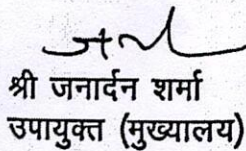 श्री जनार्दन शर्मा
उपायुक्त (मुख्यालय)